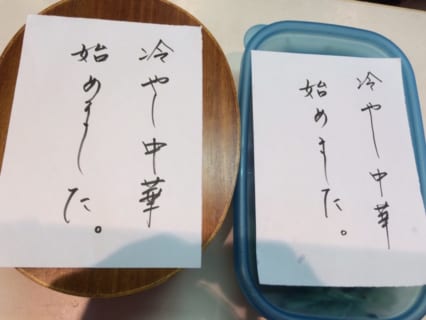 冷やし中華
始めました。
冷やし中華
始めました。